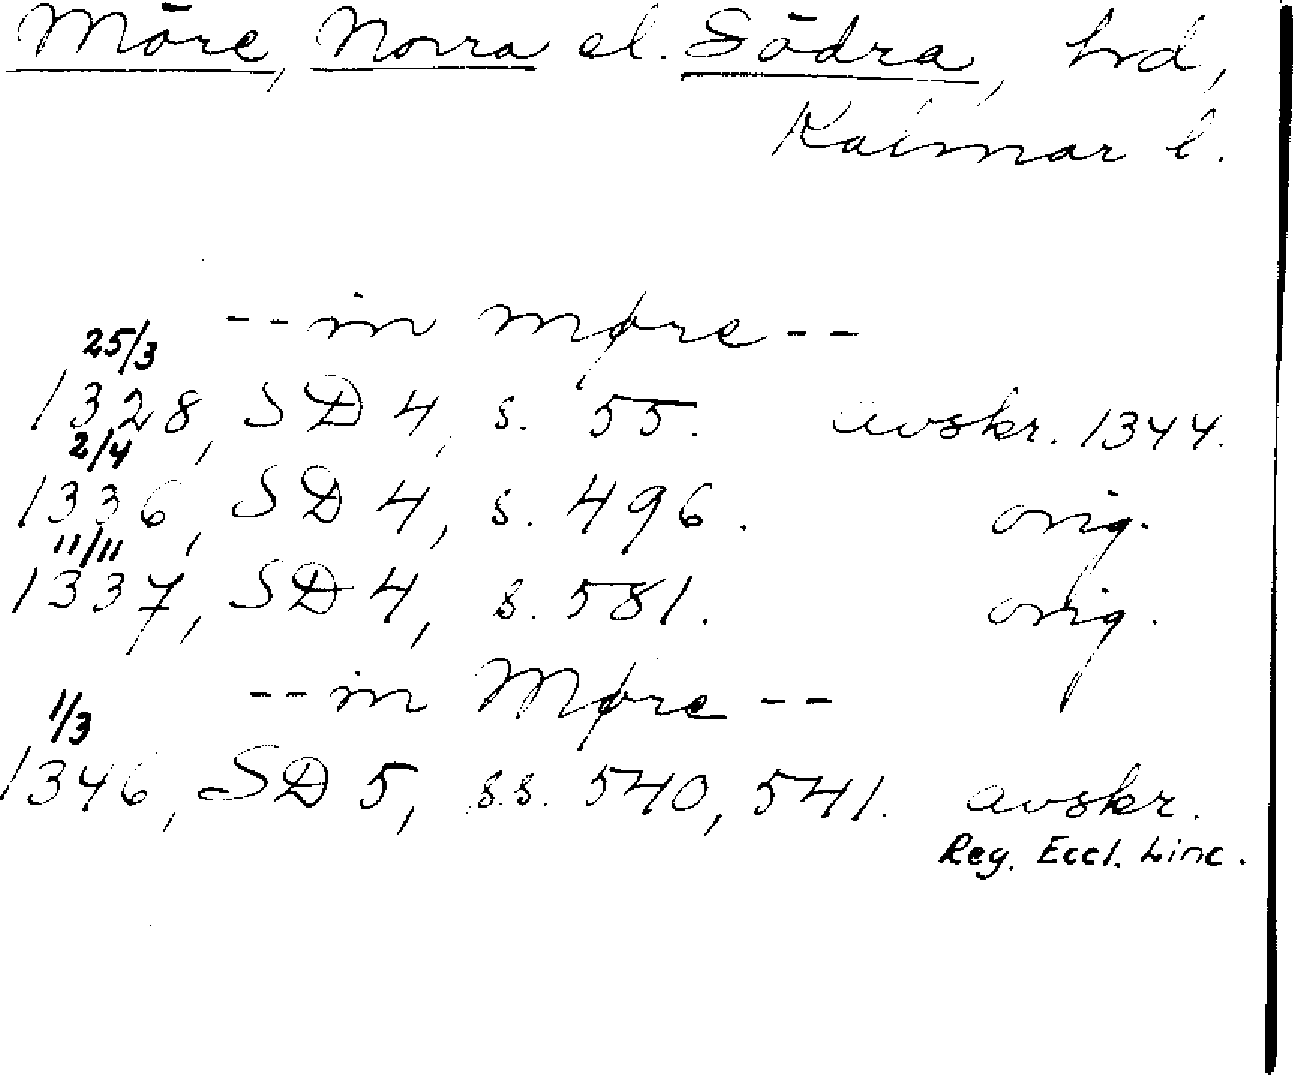 Möre, Norra el. Södra, hrd,
Kalmar l.
--in møre--
25/3
1328, SD 4, s. 55. avskr. 1344.
2/4
1336, SD 4, s. 496. orig.
11/11
1337, SD 4, s. 581. orig.
--in Møre--
1/3
1346, SD 5, s.s. 540, 541. avskr.
Reg. Eccl. Linc.